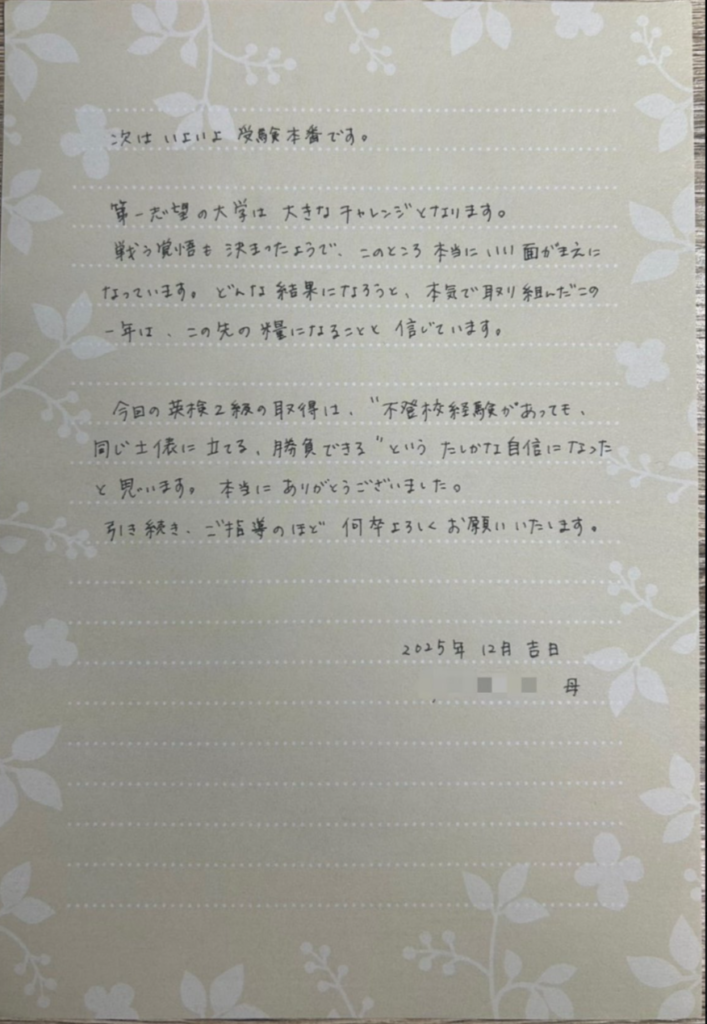 次はいよいよ受験本番です。
第一志望の大学は大きなチャレンジとなります。
戦う覚悟も決まったようで、このところ本当にいい面がまえに
なっています。どんな結果になろうと、本気で取り組んだこの
一年は、この先の糧になることと信じています。
今回の英検2級の取得は、“不登校経験があっても、
同じ土俵に立てる、勝負できる”という たしかな自信になった
と思います。本当にありがとうございました。
引き続き、ご指導のほど何卒よろしくお願いいたします。
2025年 12月 吉日
母